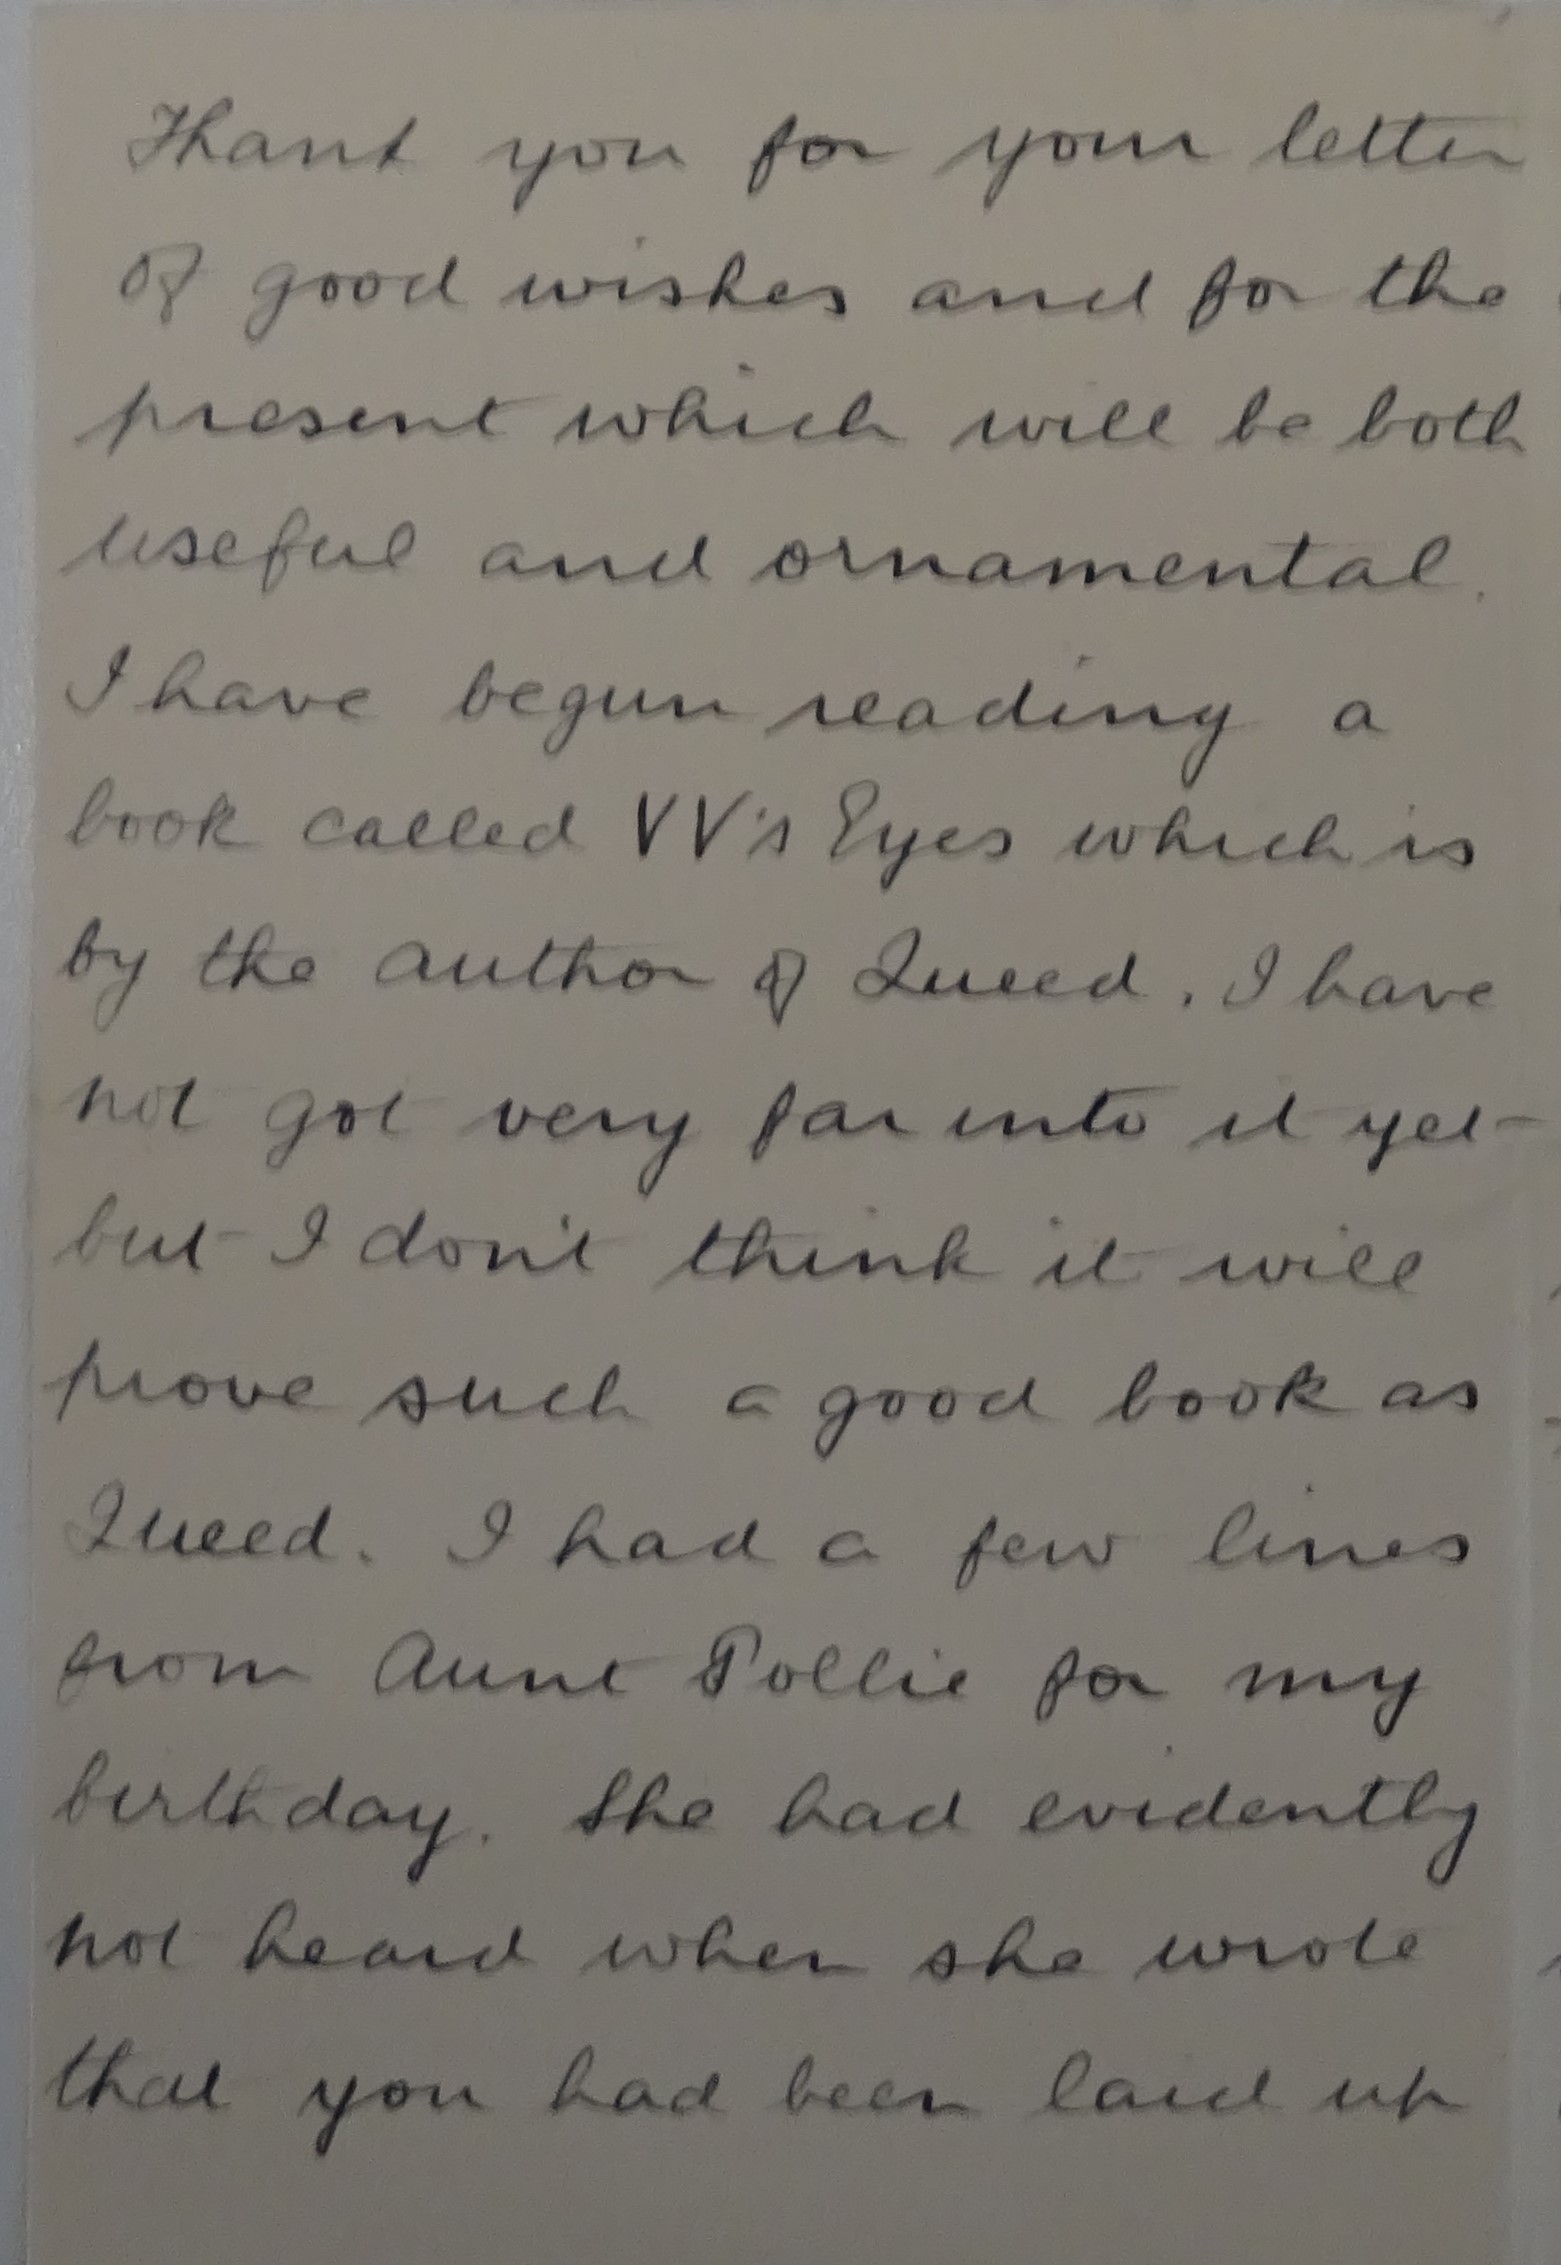 Thank you for your letter
of good wishes and for the
present which will be both
useful and ornamental.
I have begun reading a
book called VV's Eyes which is
by the author of Queed. I have
not got very far into it yet
but I don't think it will
prove such a good book as
Queed. I had a few lines
from Aunt Pollie for my
birthday. She had evidently
not heard when she wrote
that you had been laid up